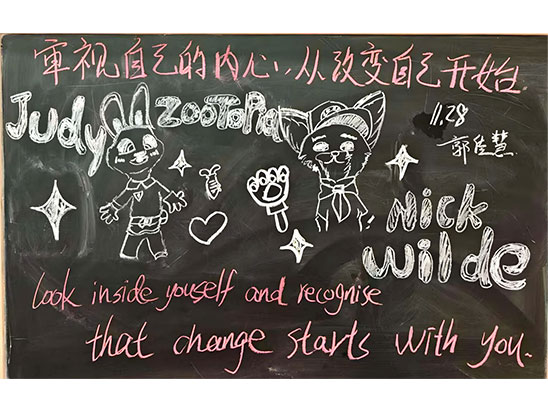 重视自己的内心，从改变自己开始.
Judy
ZOOTOPIA
11.28
郭佳慧
Nick
Wilde
look inside youself and recognise
that change starts with you.